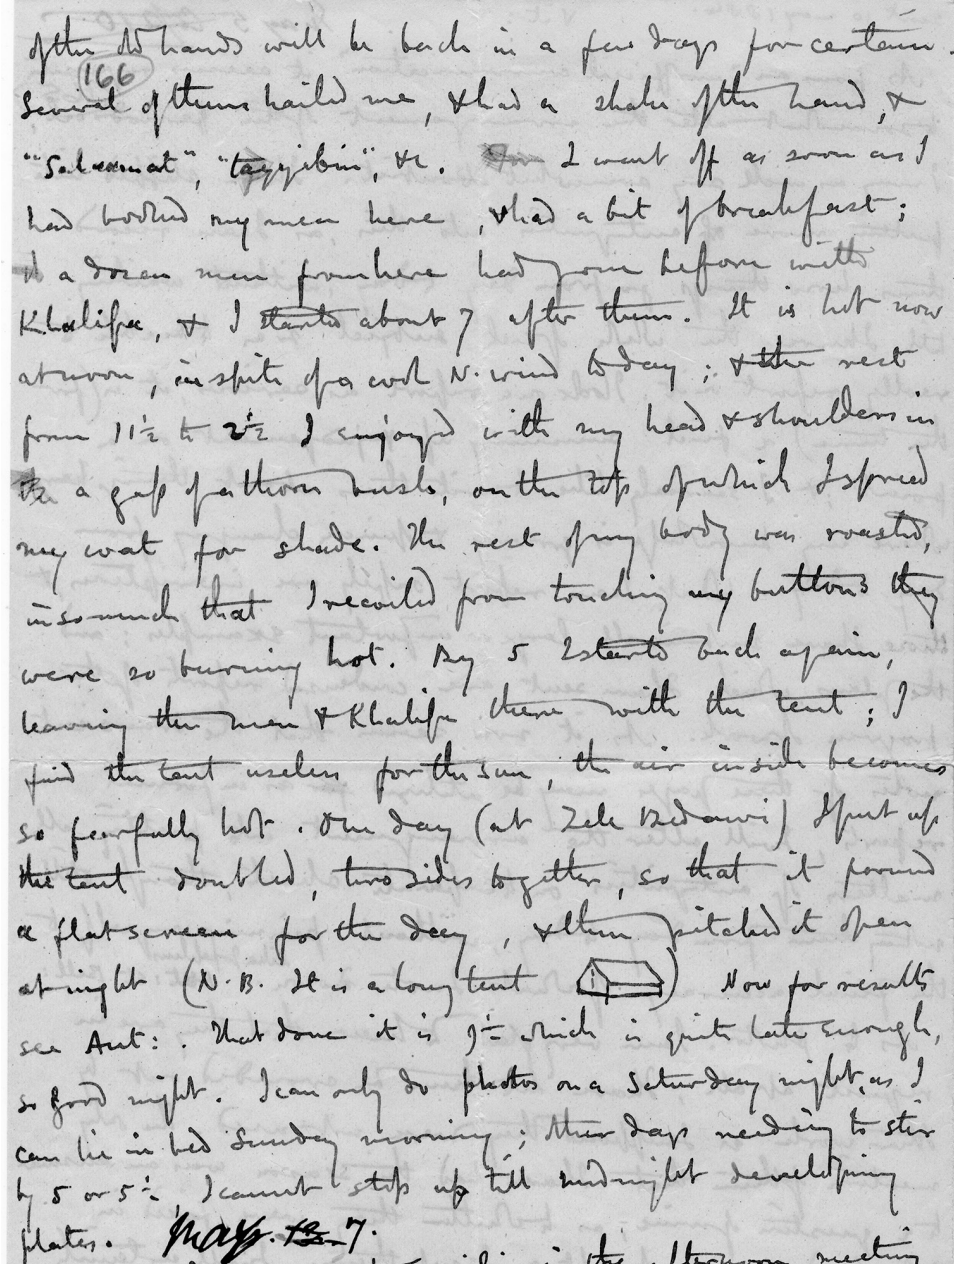 of the old hands will be back in a few days for certain.
166
Several of them hailed me, & had a shake of the hand, &
"Salaamat", "tayyibin", &c. I went off as soon as I
had booked my men here, & had a bit of breakfast;
a dozen men from here had gone before with
Khalifa, & I started about 7 after them. It is hot now
at noon, in spite of a cool N. wind today; & the rest
from 11½ to 2½ I enjoyed with my head & shoulders in
a gap of a thorn bush, on the top of which I spread
my coat for shade. The rest of my body was roasted,
insomuch that I recoiled from touching my buttons they
were so burning hot. By 5 I started back again,
leaving the men & Khalifa there with the tent; I
find the tent useless for the sun, the air inside becomes
so fearfully hot. One day (at Zele Bedawi) I put up
the tent doubled, two sides together, so that it formed
a flat screen for the day, & then pitched it open
at night (N.B. It is a long tent ) Now for results
see Ant:. That done it is 9½ which is quite late enough,
so good night. I can only do photos on a Saturday night, as I
can lie in bed Sunday morning; other days needing to stir
by 5 or 5½, I cannot stop up till midnight developing
plates. May. 13 7.
in the afternoon meeting